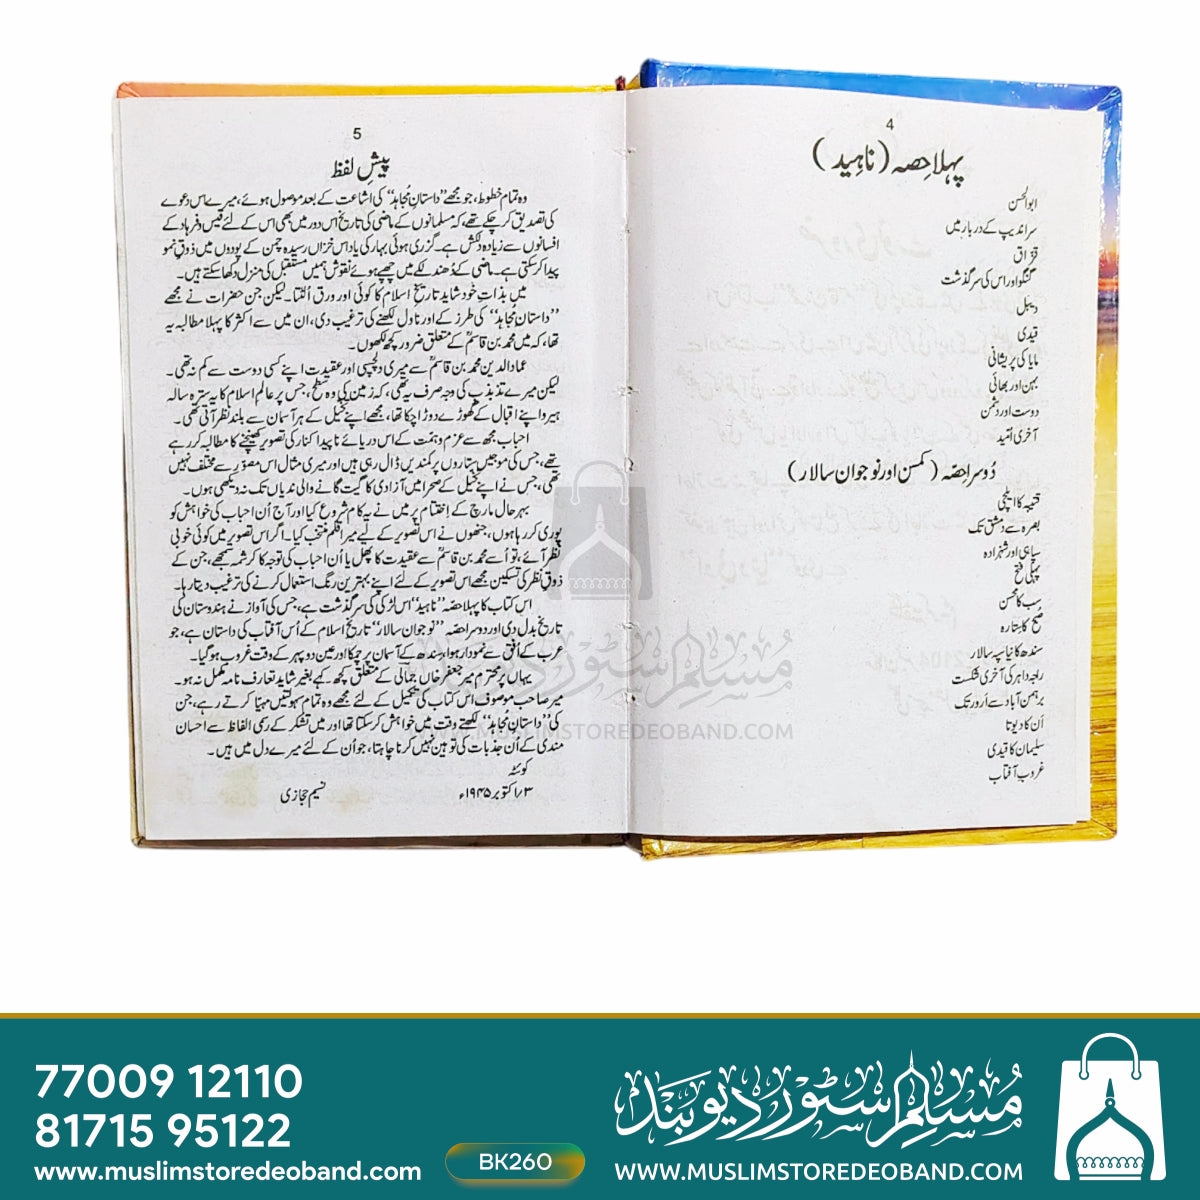 4
پہلا حِصہ (ناہید)
ابوالحسن
سراندیپ کے دربار میں
قزاق
گنگو اور اس کی سرگذشت
دیبل
قیدی
مایا کی پریشانی
بہن اور بھائی
دوست اور دشمن
آخری امّید
دُوسرا حصّہ (کمسن اور نوجوان سالار)
قتیبہ کا ایلچی
بصرہ سے دمشق تک
سپاہی اور شہزادہ
پہلی فتح
سب کا محسن
صبح کا ستارہ
سندھ کا نیا سپہ سالار
راجہ داہر کی آخری شکست
برہمن آباد سے اَرور تک
اُن کا دیوتا
سلیمان کا قیدی
غروبِ آفتاب
5
پیشِ لفظ
وہ تمام خطوط، جو مجھے ”داستانِ مُجاہد“ کی اشاعت کے بعد موصول ہوئے، میرے اس دعوے
کی تصدیق کر چکے تھے، کہ مسلمانوں کے ماضی کی تاریخ اس دور میں بھی اس کے لئے قیس و فرہاد کے
افسانوں سے زیادہ دلکش ہے۔ گزری ہوئی بہار کی یاد اس خزاں رسیدہ چمن کے پودوں میں ذوقِ نمو
پیدا کر سکتی ہے۔ ماضی کے دُھندلکے میں چھپے ہوئے نقوش ہمیں مستقبل کی منزل دکھا سکتے ہیں۔
میں بذاتِ خود شاید تاریخ اسلام کا کوئی اور ورق اُلٹتا۔ لیکن جن حضرات نے مجھے
”داستانِ مُجاہد“ کی طرز کے اور ناول لکھنے کی ترغیب دی، ان میں سے اکثر کا پہلا مطالبہ یہ
تھا، کہ میں محمد بن قاسمؒ کے متعلق ضرور کچھ لکھوں۔
عمادالدین محمد بن قاسمؒ سے میری دلچسپی اور عقیدت اپنے کسی دوست سے کم نہ تھی۔
لیکن میرے تذبذب کی وجہ صرف یہ تھی، کہ زمین کی وہ سطح، جس پر عالمِ اسلام کا یہ سترہ سالہ
ہیرو اپنے اقبال کے گھوڑے دوڑا چکا تھا، مجھے اپنے تخیل کے ہر آسمان سے بلند نظر آتی تھی۔
احباب مجھ سے عزم و ہمت کے اس دریائے ناپیدا کنار کی تصویر کھینچنے کا مطالبہ کر رہے
تھے، جس کی موجیں ستاروں پر کمندیں ڈال رہی ہیں اور میری مثال اس مصوّر سے مختلف نہیں
تھی، جس نے اپنے تخیل کے صحرا میں آزادی کا گیت گانے والی ندیاں تک نہ دیکھی ہوں۔
بہرحال مارچ کے اِختتام پر میں نے یہ کام شروع کیا اور آج اُن احباب کی خواہش کو
پوری کر رہا ہوں، جنھوں نے اس تصویر کے لیے میرا قلم منتخب کیا۔ اگر اس تصویر میں کوئی خوبی
نظر آئے، تو اُسے محمد بن قاسمؒ سے عقیدت کا پھل یا اُن احباب کی توجہ کا کرشمہ سمجھے، جن کے
ذوقِ نظر کی تسکین مجھے اس تصویر کے لئے اپنے بہترین رنگ استعمال کرنے کی ترغیب دیتا رہا۔
اس کتاب کا پہلا حصّہ ”ناہید“ اس لڑکی کی سرگذشت ہے، جس کی آواز نے ہندوستان کی
تاریخ بدل دی اور دوسرا حصّہ ”نوجوان سالار“ تاریخ اسلام کے اُس آفتاب کی داستان ہے، جو
عرب کے اُفق سے نمودار ہوا، سندھ کے آسمان پر چمکا اور عین دوپہر کے وقت غروب ہو گیا۔
یہاں پر محترم میر جعفر خاں جمالی کے متعلق کچھ کہے بغیر شاید تعارف نامہ مکمل نہ ہو۔
میر صاحب موصوف اس کتاب کی تکمیل کے لئے مجھے وہ تمام سہولتیں مہیّا کرتے رہے، جن
کی ”داستانِ مُجاہد“ لکھتے وقت میں خواہش کر سکتا تھا اور میں تشکر کے رسمی الفاظ سے احسان
مندی کے اُن جذبات کی توہین نہیں کرنا چاہتا، جو اُن کے لئے میرے دل میں ہیں۔
کوئٹہ
۳؍اکتوبر ۱۹۴۵ء نسیم حجازی
مُسلم سٹور دیوبند
WWW.MUSLIMSTOREDEOBAND.COM
77009 12110
81715 95122
www.muslimstoredeoband.com
BK260
مُسلم سٹور دیوبند
WWW.MUSLIMSTOREDEOBAND.COM